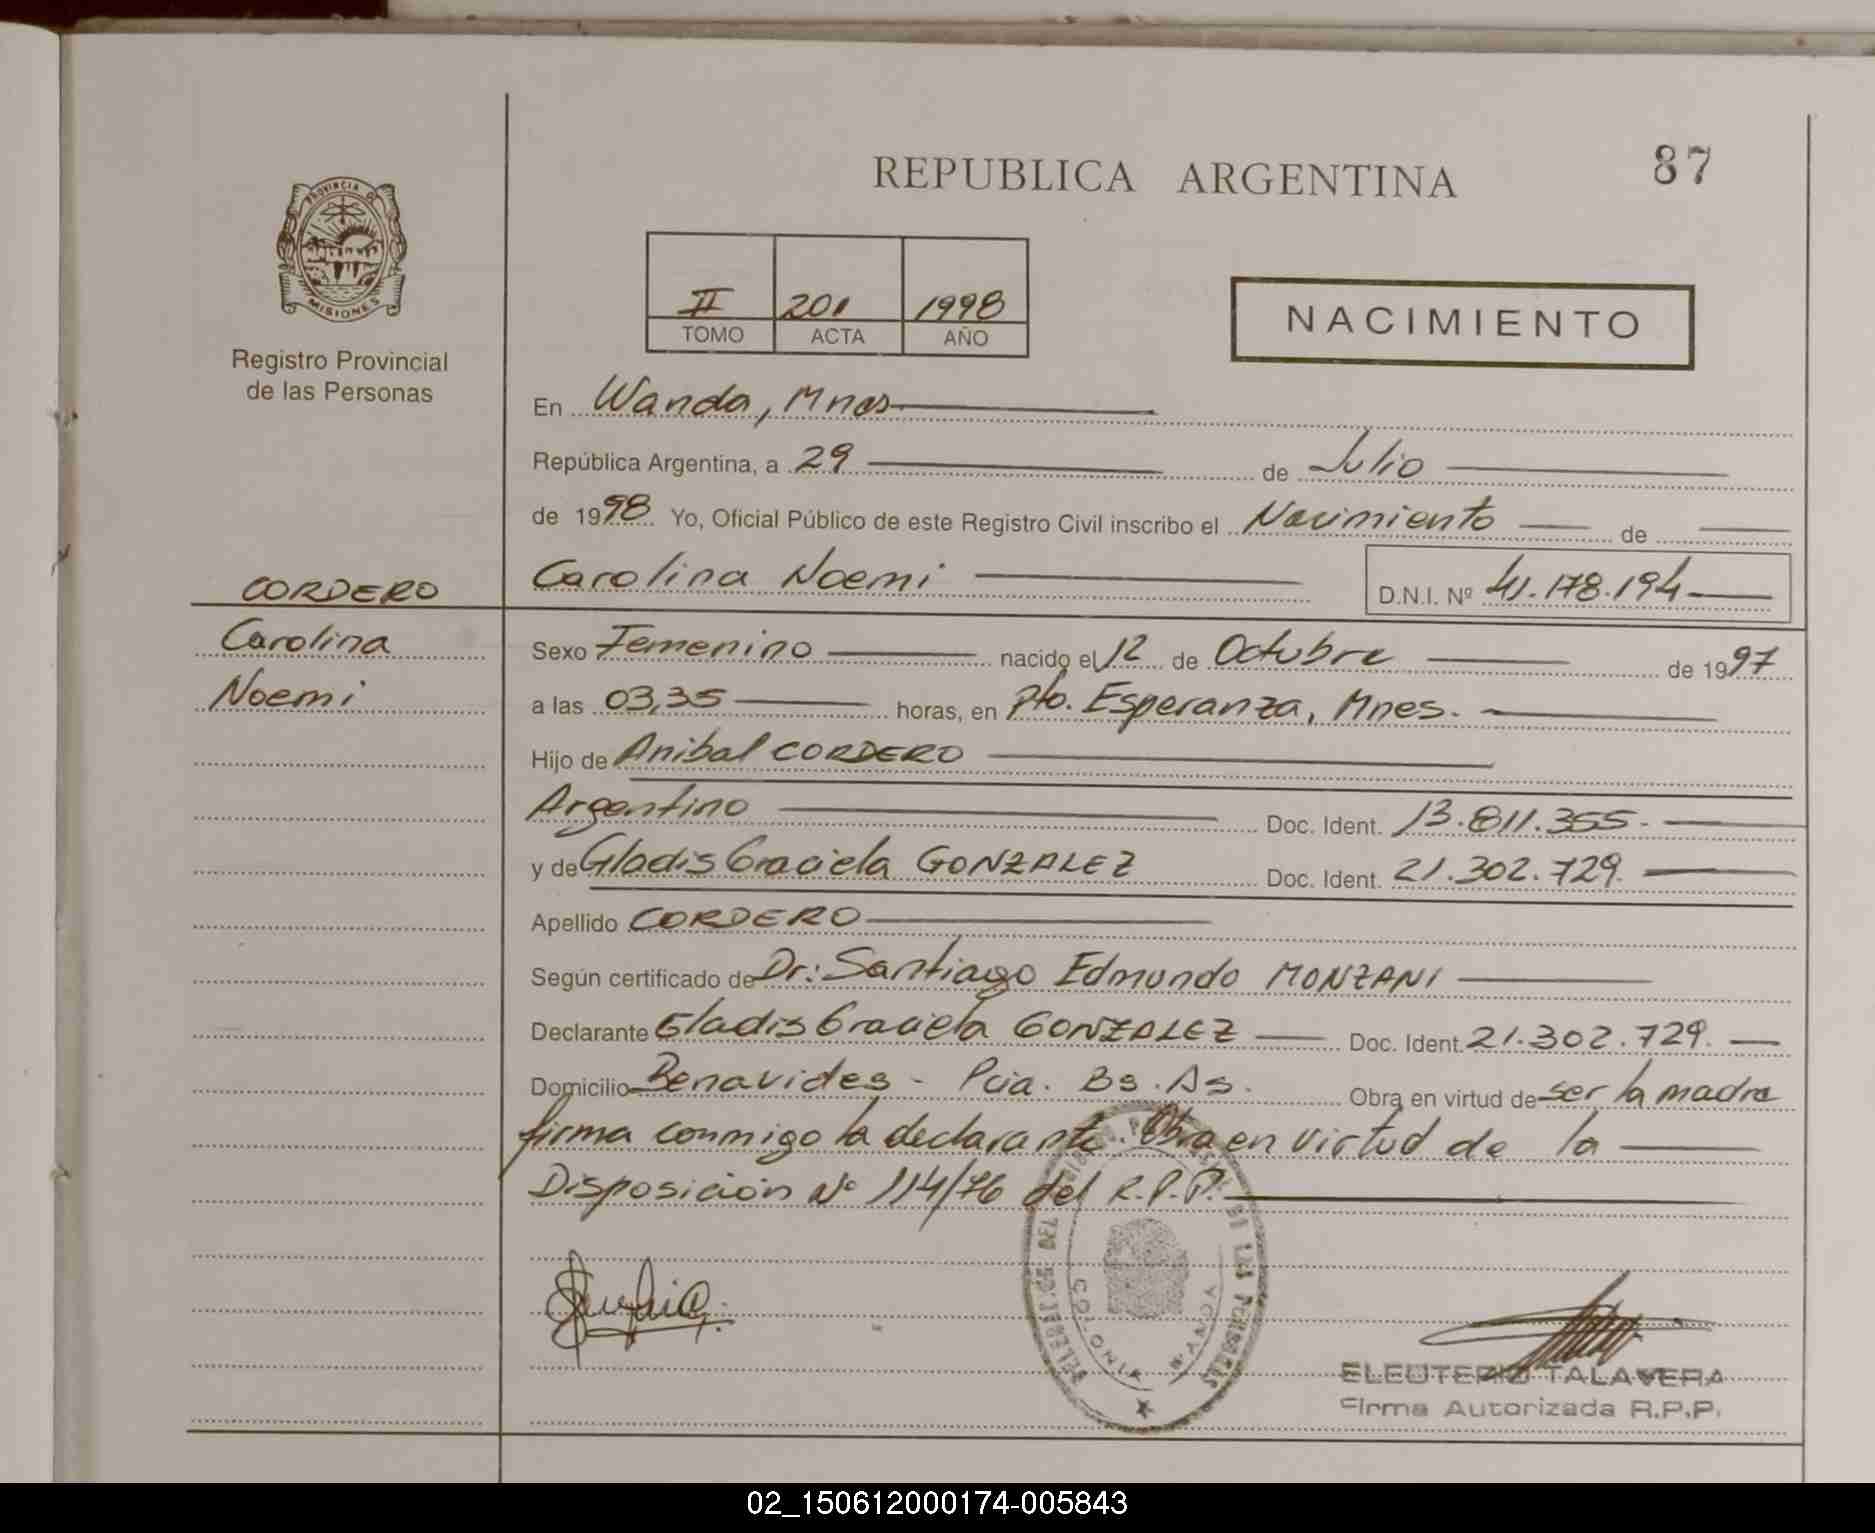 REPUBLICA ARGENTINA
87
PROVINCIA DE
MISIONES
Registro Provincial
de las Personas
II 201 1998
TOMO ACTA AÑO
NACIMIENTO
En Wanda, Mnes
República Argentina, a 29 de Julio
de 1998 Yo, Oficial Público de este Registro Civil inscribo el Nacimiento de
Carolina Noemi D.N.I. Nº 41.178.194
CORDERO
Carolina
Noemi
Sexo Femenino nacido el 12 de Octubre de 1997
a las 03,35 horas, en Pto. Esperanza, Mnes.
Hijo de Anibal CORDERO
Argentino Doc. Ident. 13.811.355.
y de Gladis Graciela GONZALEZ Doc. Ident. 21.302.729.
Apellido CORDERO
Según certificado de Dr: Santiago Edmundo MONZANI
Declarante Gladis Graciela GONZALEZ Doc. Ident. 21.302.729.
Domicilio Benavides - Pcia. Bs. As. Obra en virtud de ser la madre
firma conmigo la declarante. Obra en virtud de la
Disposición Nº 114/76 del R.P.P.
COLONIA WANDA
DE LAS PERSONAS
ELEUTERIO TALAVERA
Firma Autorizada R.P.P.
02_150612000174-005843